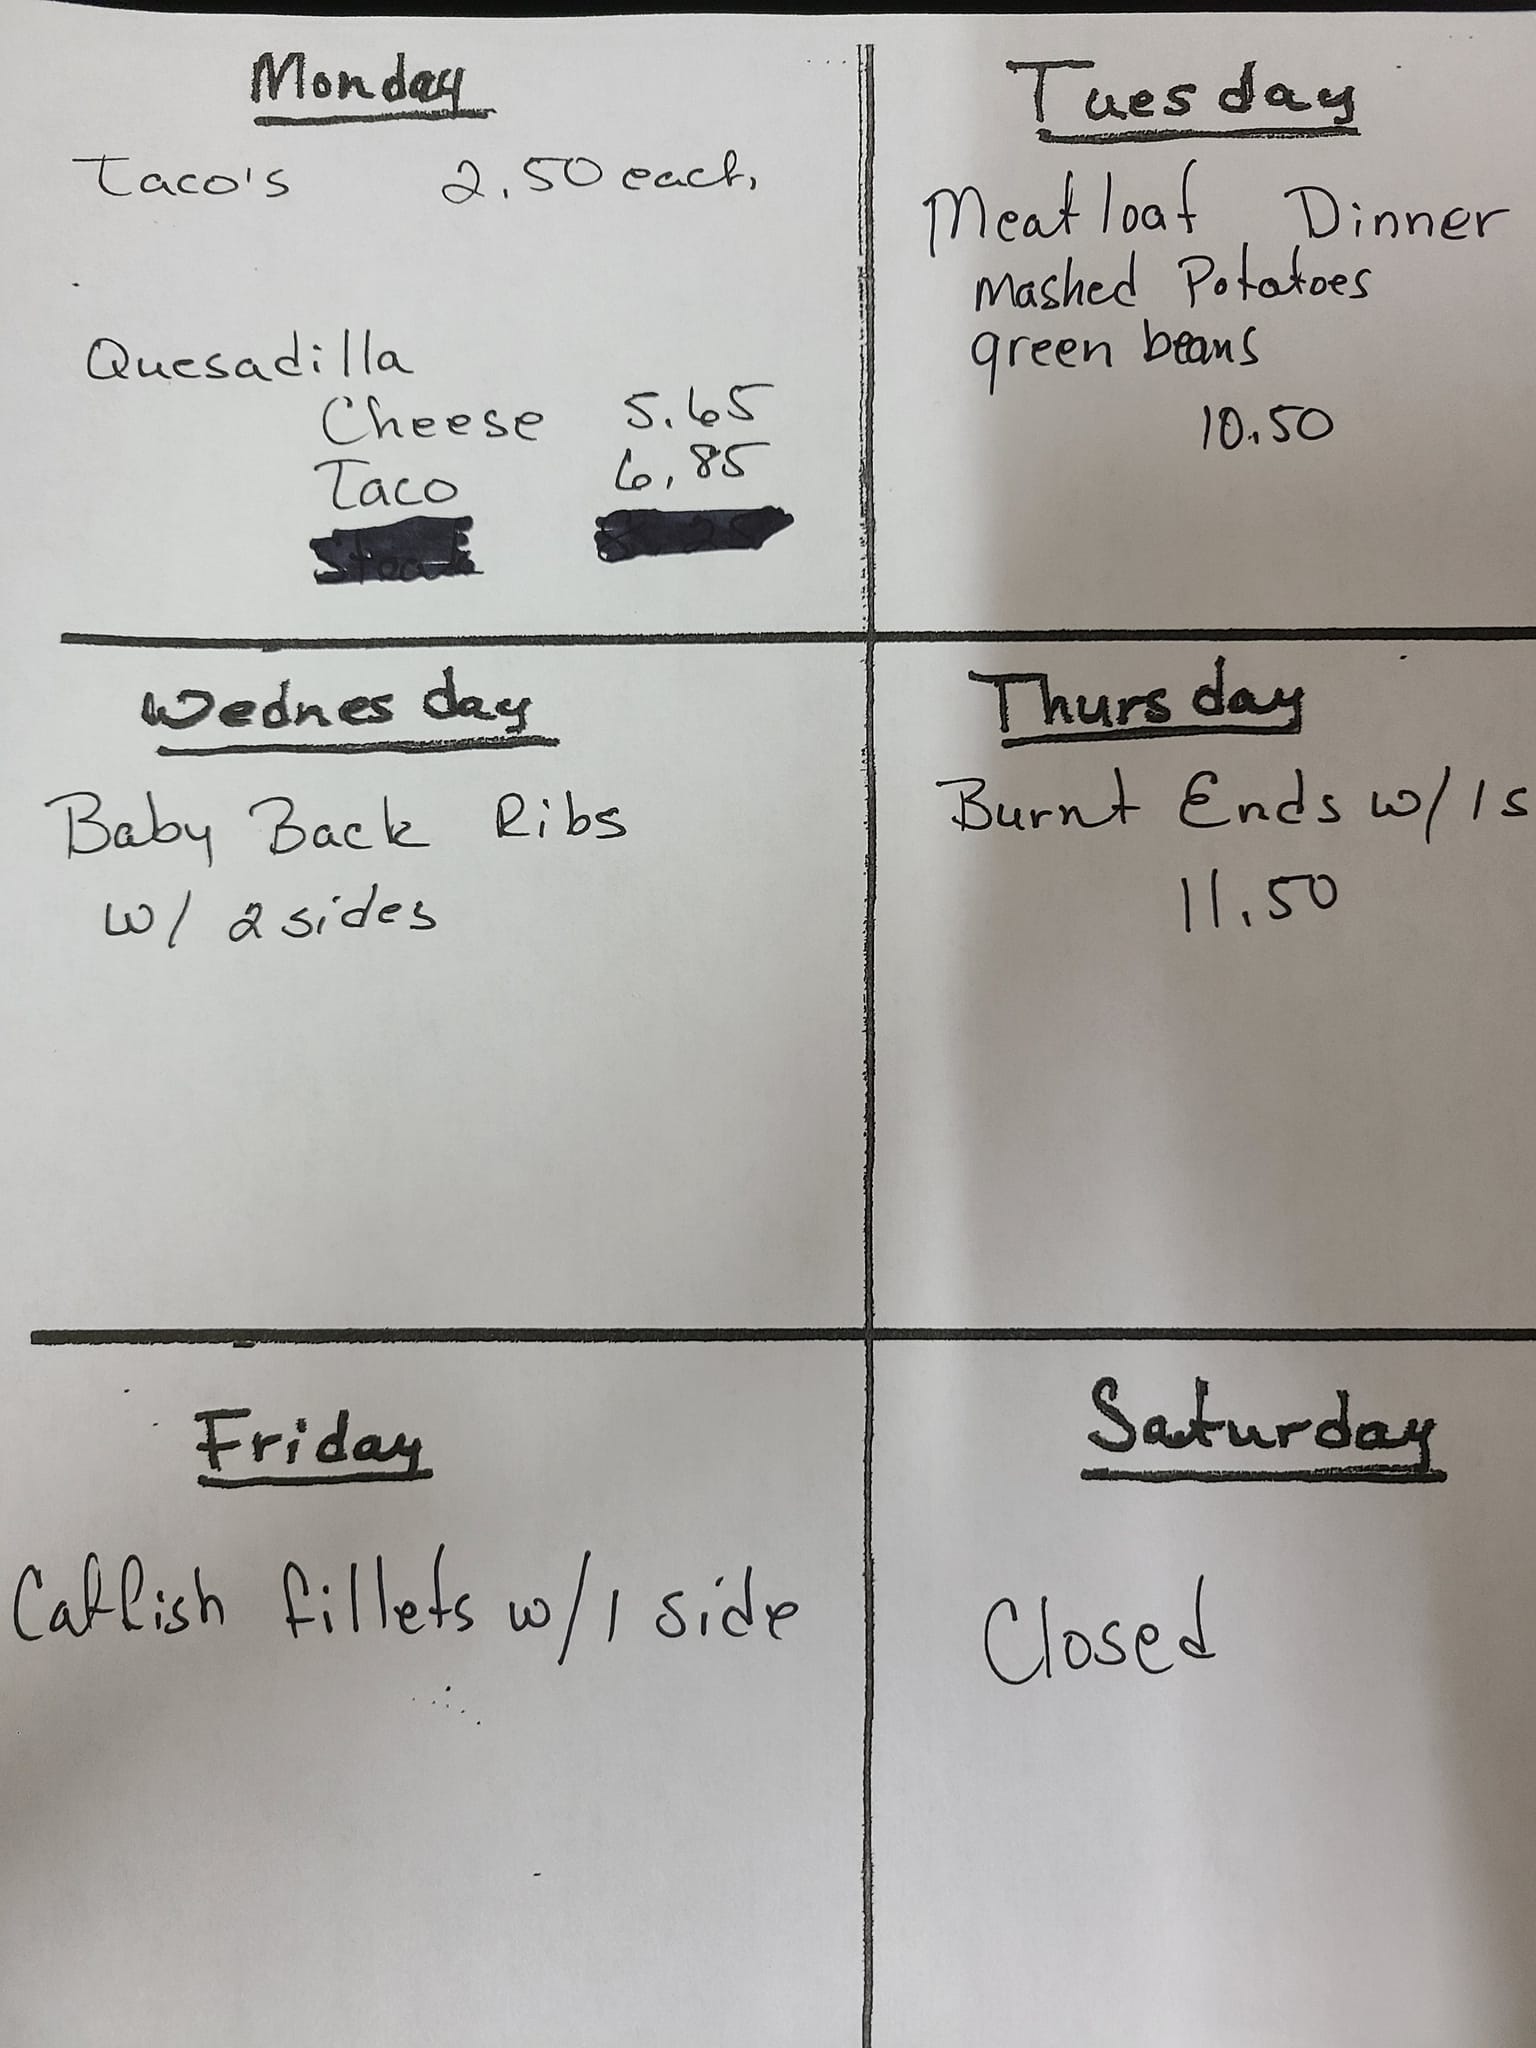 Monday
Taco's 2.50 each,
Quesadilla
Cheese 5.65
Taco 6.85
Tuesday
Meatloaf Dinner
Mashed Potatoes
green beans
10.50
Wednesday
Baby Back Ribs
w/ 2 sides
Thursday
Burnt Ends w/ 1 s
11.50
Friday
Catfish fillets w/ 1 side
Saturday
Closed